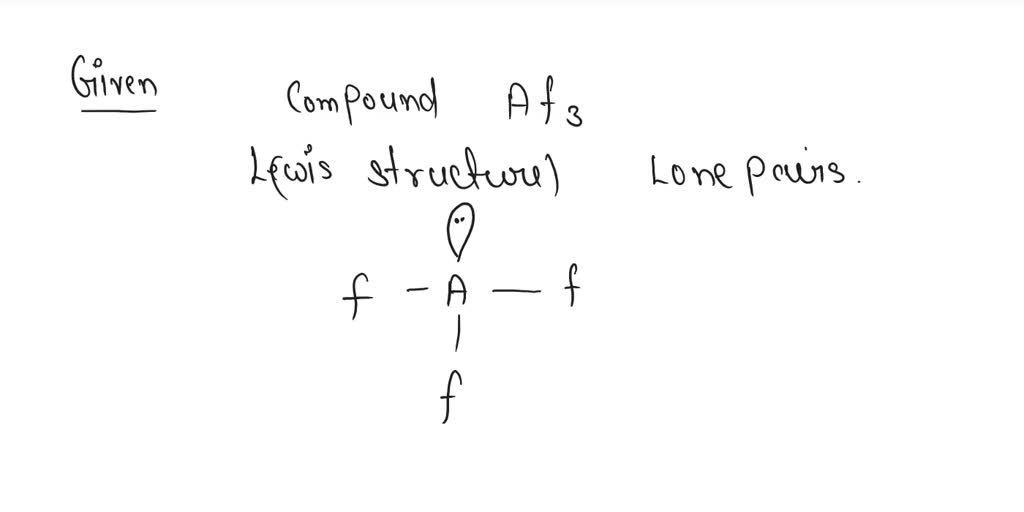 Given
Compound Af3
Lewis structure) Lone pairs.
f - A — f
f